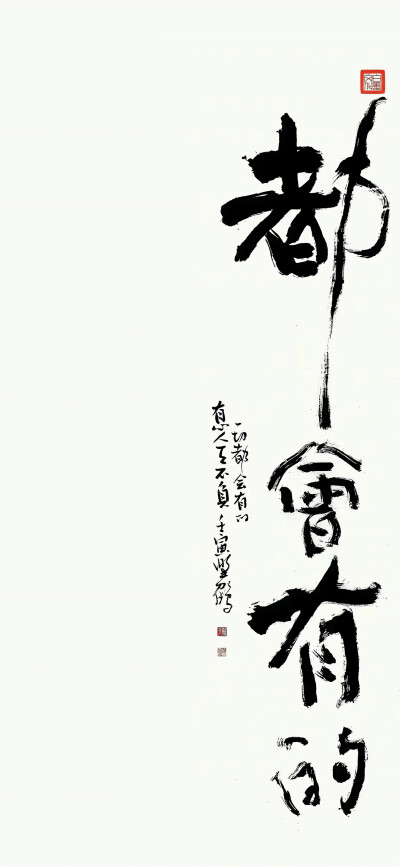 都會有的
一切都会有的
有心人天不負壬寅